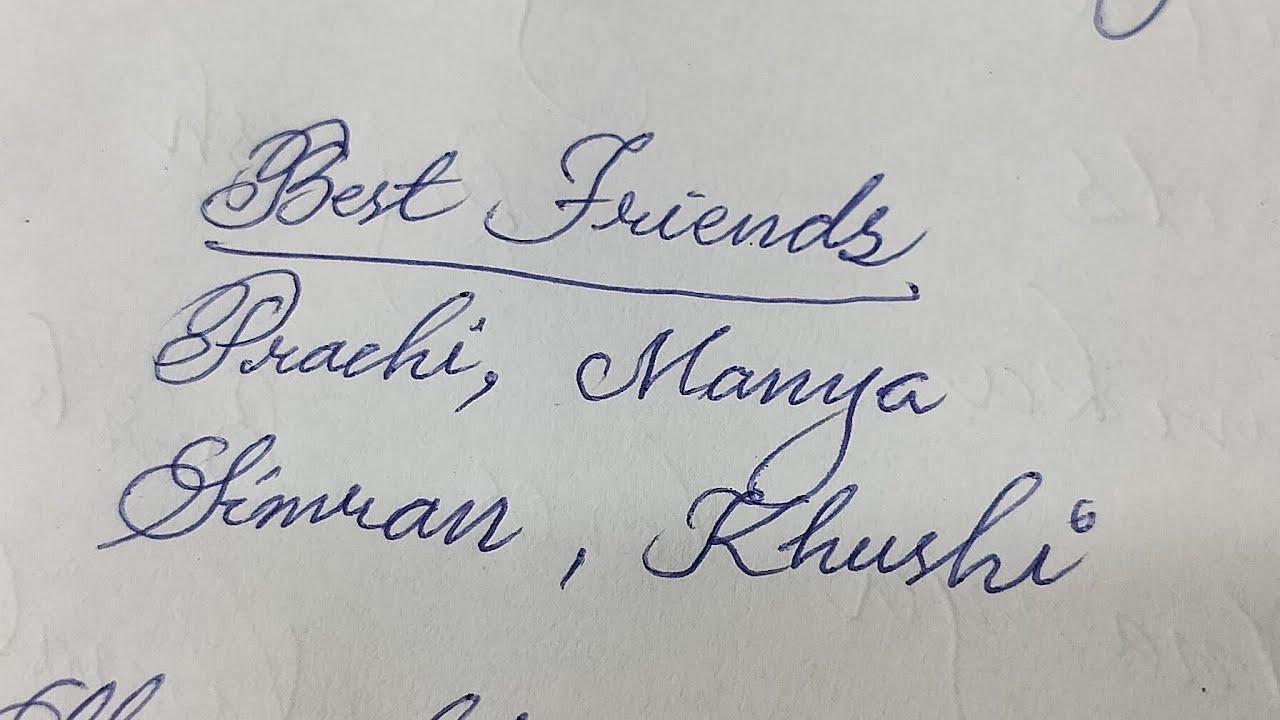 Best Friends
Prachi, Manya
Simran, Khushi